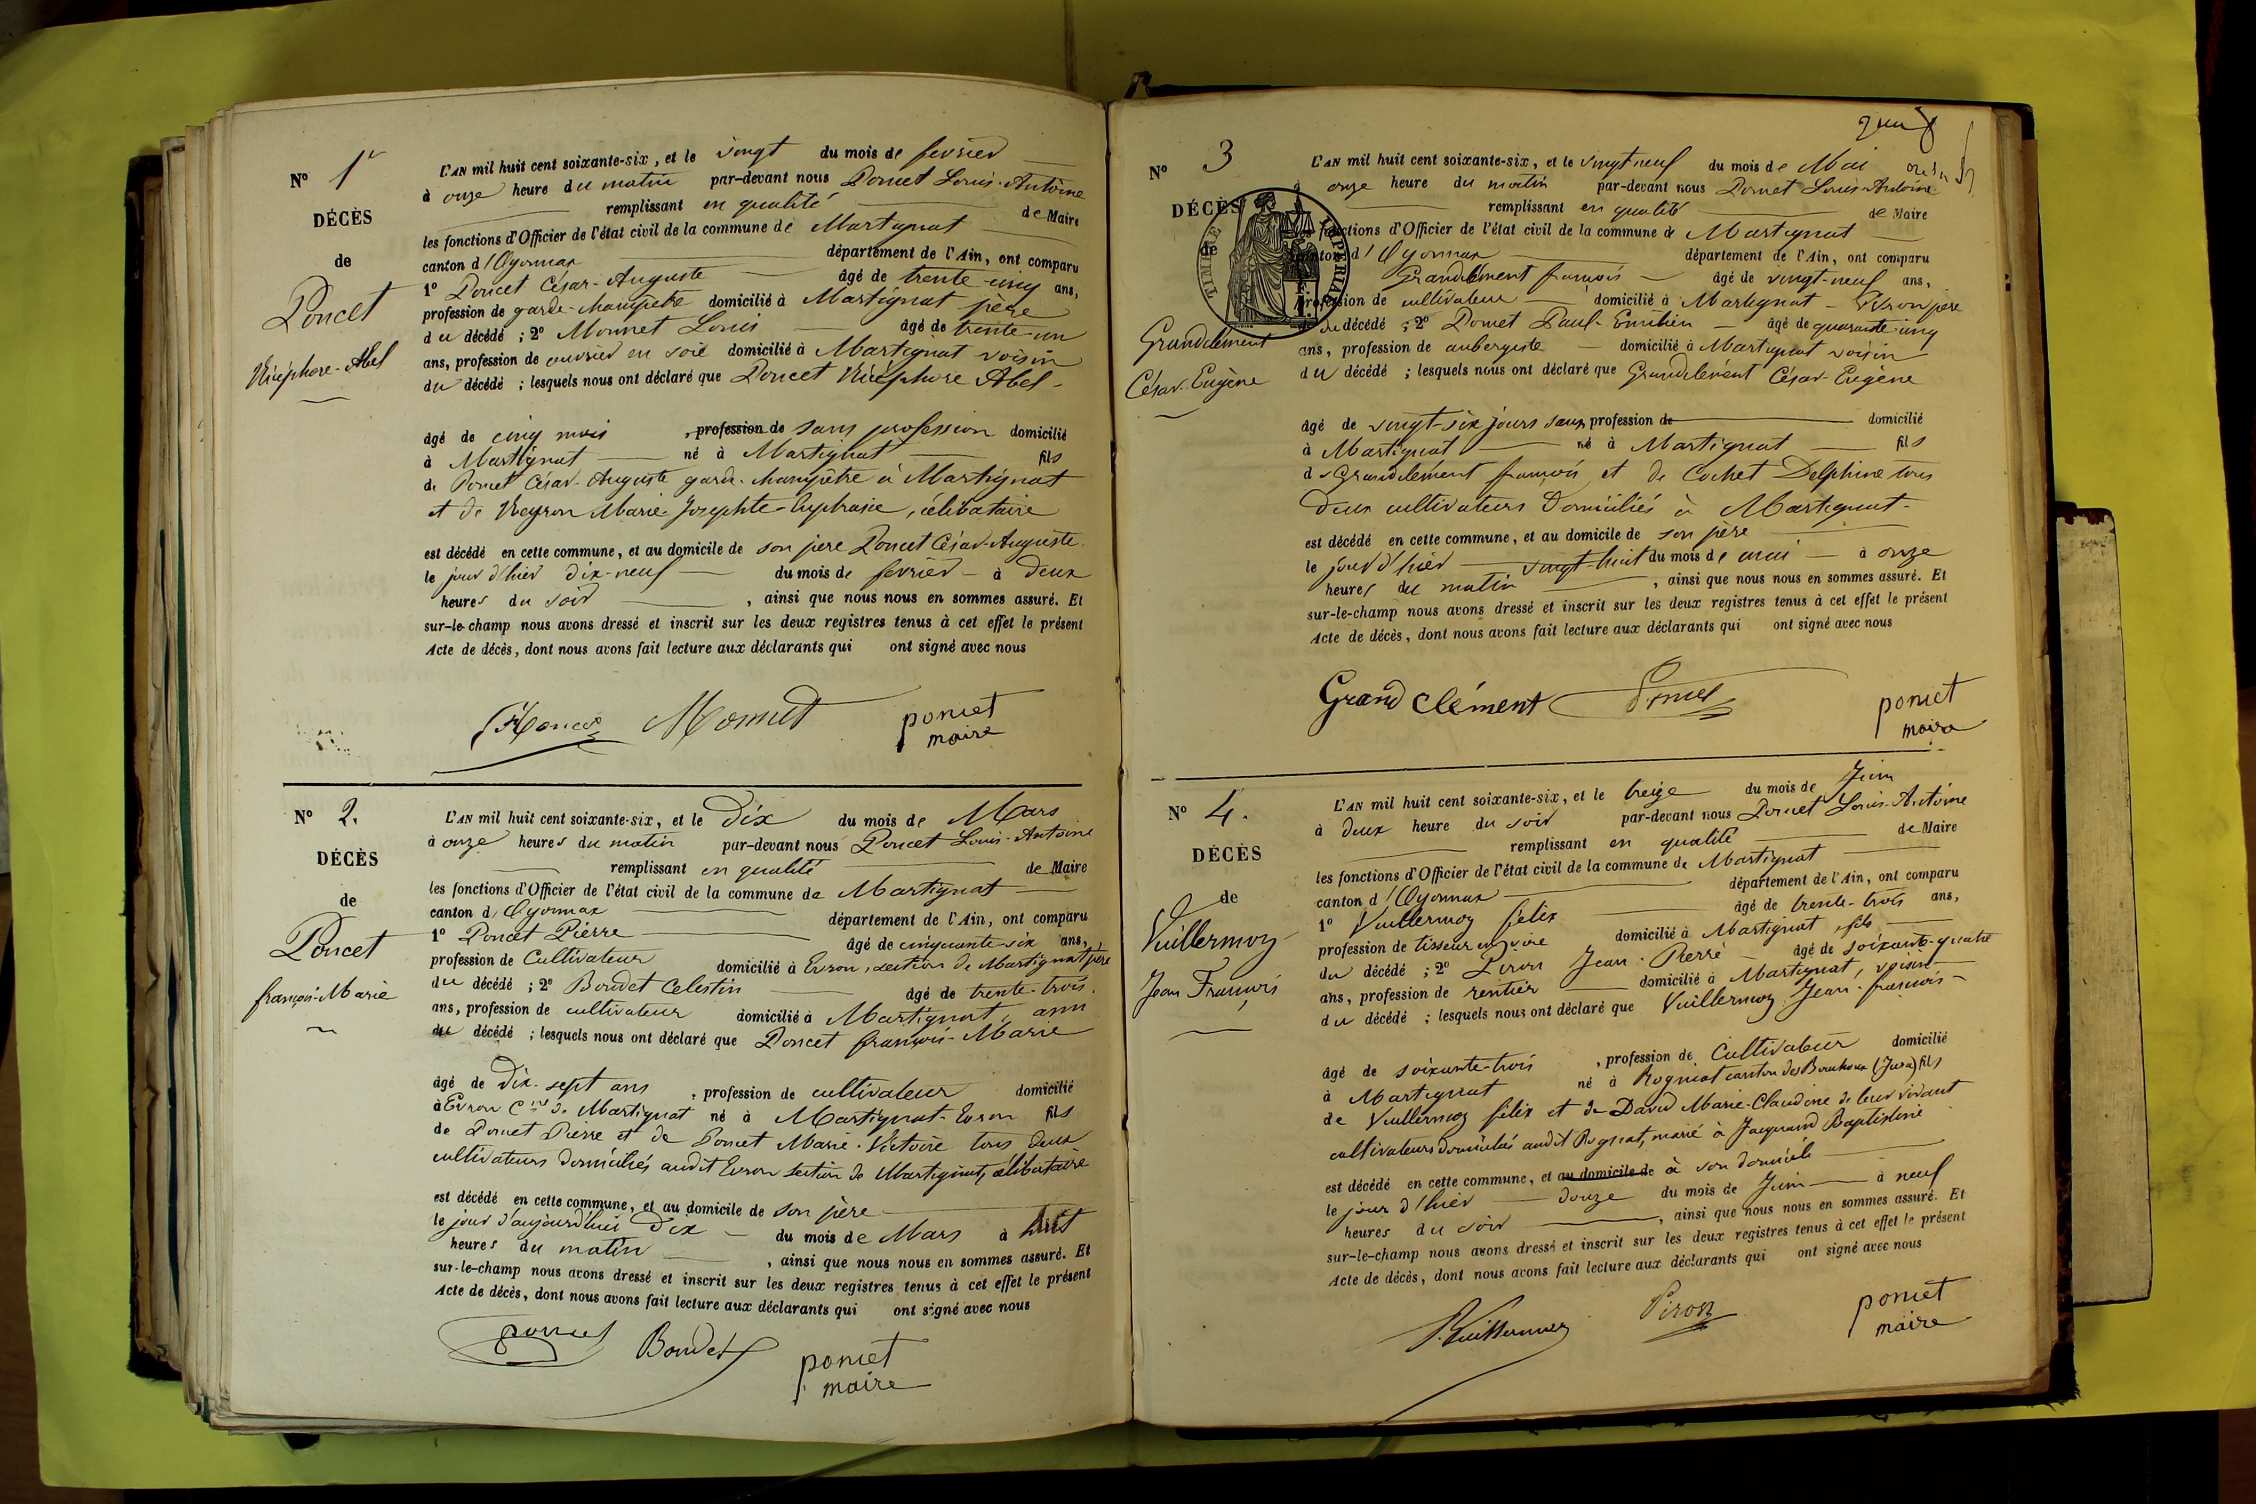 N° 1er
DÉCÈS
de
Poncet
Nicéphore-Abel
L'AN mil huit cent soixante-six, et le vingt du mois de février
à onze heure du matin par-devant nous Poncet Louis-Antoine
remplissant en qualité de Maire
les fonctions d'Officier de l'état civil de la commune de Martignat
canton d'Oyonnax département de l'Ain, ont comparu
1° Poncet César-Auguste âgé de trente-cinq ans,
profession de garde-champêtre domicilié à Martignat père
du décédé ; 2° Monnet Louis âgé de trente-un
ans, profession de ouvrier en soie domicilié à Martignat voisin
du décédé ; lesquels nous ont déclaré que Poncet Nicéphore Abel
âgé de cinq mois , profession de sans profession domicilié
à Martignat né à Martignat fils
de Poncet César-Auguste garde-champêtre à Martignat
et de Neyron Marie-Josephte-Euphrasie, célibataire
est décédé en cette commune, et au domicile de son père Poncet César-Auguste
le jour d'hier dix-neuf du mois de février à deux
heures du soir , ainsi que nous nous en sommes assuré. Et
sur-le-champ nous avons dressé et inscrit sur les deux registres tenus à cet effet le présent
Acte de décès, dont nous avons fait lecture aux déclarants qui ont signé avec nous
Monnet poncet
maire
N° 2.
DÉCÈS
de
Poncet
françois-Marie
L'AN mil huit cent soixante-six, et le Dix du mois de Mars
à onze heures du matin par-devant nous Poncet Louis-Antoine
remplissant en qualité de Maire
les fonctions d'Officier de l'état civil de la commune de Martignat
canton d'Oyonnax département de l'Ain, ont comparu
1° Poncet Pierre âgé de cinquante-six ans,
profession de Cultivateur domicilié à Evron, section de Martignat père
du décédé ; 2° Boudet Celestin âgé de trente-trois
ans, profession de cultivateur domicilié à Martignat, ami
du décédé ; lesquels nous ont déclaré que Poncet françois-Marie
âgé de Dix-sept ans , profession de cultivateur domicilié
à Evron Cne de Martignat né à Martignat-Evron fils
de Poncet Pierre et de Poncet Marie-Victoire tous deux
cultivateurs domiciliés audit Evron section de Martignat, célibataire
est décédé en cette commune, et au domicile de son père
le jour d'aujourd'hui Dix du mois de Mars à huit
heures du matin , ainsi que nous nous en sommes assuré. Et
sur-le-champ nous avons dressé et inscrit sur les deux registres tenus à cet effet le présent
Acte de décès, dont nous avons fait lecture aux déclarants qui ont signé avec nous
poncet Boudet poncet
maire
N° 3
DÉCÈS
de
Grandclément
César-Eugène
TIMBRE IMPÉRIAL
L'AN mil huit cent soixante-six, et le vingt neuf du mois de Mai
onze heure du matin par-devant nous Poncet Louis-Antoine
remplissant en qualité de Maire
les fonctions d'Officier de l'état civil de la commune de Martignat
canton d'Oyonnax département de l'Ain, ont comparu
Grandclément françois âgé de vingt-neuf ans,
profession de cultivateur domicilié à Martignat - Evron père
du décédé ; 2° Poncet Paul-Emilien âgé de quarante-cinq
ans, profession de aubergiste domicilié à Martignat voisin
du décédé ; lesquels nous ont déclaré que Grandclément César-Eugène
âgé de vingt-six jours sans profession de domicilié
à Martignat né à Martignat fils
de Grandclément françois et de Cochet Delphine tous
Deux cultivateurs Domiciliés à Martignat
est décédé en cette commune, et au domicile de son père
le jour d'hier vingt-huit du mois de mai à onze
heures du matin , ainsi que nous nous en sommes assuré. Et
sur-le-champ nous avons dressé et inscrit sur les deux registres tenus à cet effet le présent
Acte de décès, dont nous avons fait lecture aux déclarants qui ont signé avec nous
Grandclément poncet
maire
N° 4.
DÉCÈS
de
Vuillermoz
Jean François
L'AN mil huit cent soixante-six, et le treize du mois de Juin
à deux heure du soir par-devant nous Poncet Louis-Antoine
remplissant en qualité de Maire
les fonctions d'Officier de l'état civil de la commune de Martignat
canton d'Oyonnax département de l'Ain, ont comparu
1° Vuillermoz félix âgé de trente-trois ans,
profession de tisseur en soie domicilié à Martignat, fils
du décédé ; 2° Piron Jean-Pierre âgé de soixante-quatre
ans, profession de rentier domicilié à Martignat, voisin
du décédé ; lesquels nous ont déclaré que Vuillermoz Jean-françois
âgé de soixante-trois , profession de Cultivateur domicilié
à Martignat né à Rogniat canton des Bouchoux (Jura) fils
de Vuillermoz félix et de David Marie-Claudine de leur vivant
cultivateurs domiciliés audit Rogniat, marié à Jacquand Baptistine
est décédé en cette commune, et au domicile de à son domicile
le jour d'hier douze du mois de Juin à neuf
heures du soir , ainsi que nous nous en sommes assuré. Et
sur-le-champ nous avons dressé et inscrit sur les deux registres tenus à cet effet le présent
Acte de décès, dont nous avons fait lecture aux déclarants qui ont signé avec nous
Vuillermoz Piron poncet
maire